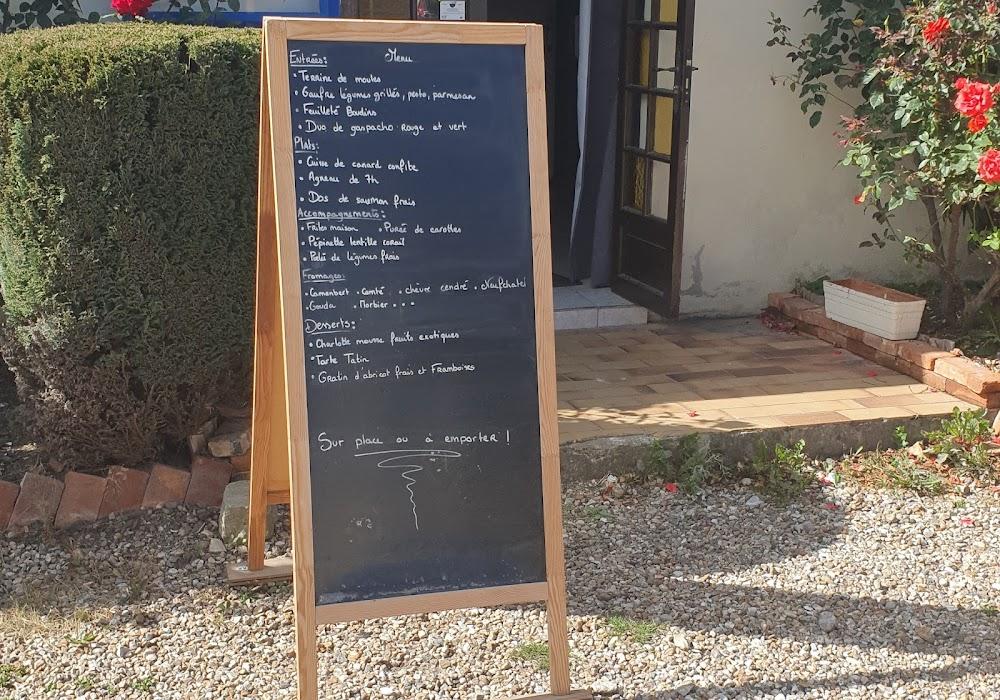 Menu
Entrées:
• Terrine de moules
• Gaufre légumes grillés, pesto, parmesan
• Feuilleté Boudins
• Duo de gaspacho rouge et vert
Plats:
• Cuisse de canard confite
• Agneau de 7h
• Dos de saumon frais
Accompagnements:
• Frites maison • Purée de carottes
• Pépinette lentille corail
• Poêlée de légumes frais
Fromages:
• Camembert • Comté • chèvre cendré • Neufchatel
• Gouda • Morbier • • •
Desserts:
• Charlotte mousse fruits exotiques
• Tarte Tatin
• Gratin d'abricot frais et Framboises
Sur place ou à emporter !